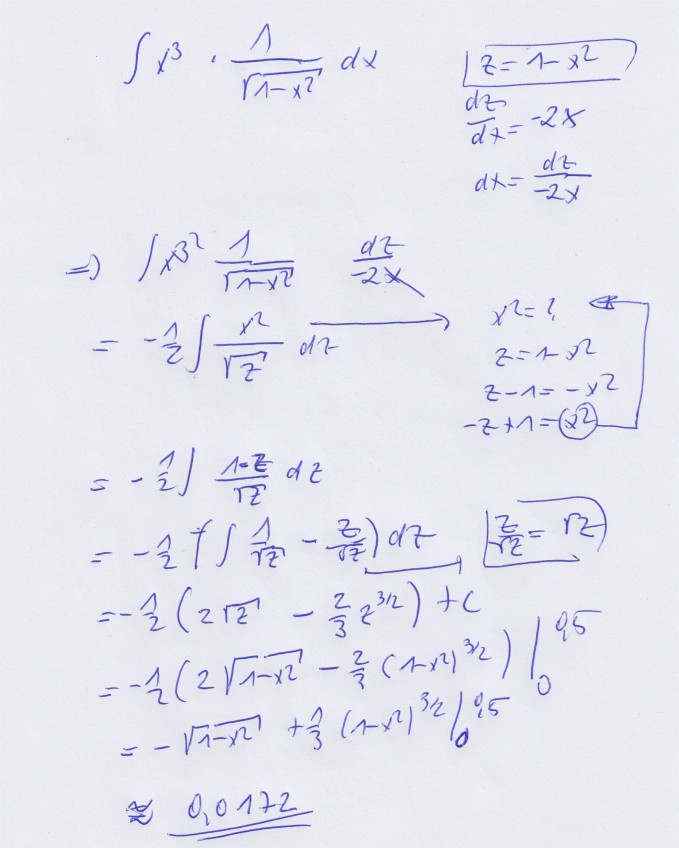 ∫ x³ · 1/√(1-x²) dx
z = 1-x²
dz/dx = -2x
dx = dz/-2x
=> ∫ x³² 1/√(1-x²) dz/-2x
= -1/2 ∫ x²/√z dz
x² = ?
z = 1-x²
z-1 = -x²
-z+1 = x²
= -1/2 ∫ 1-z/√z dz
= -1/2 ( ∫ 1/√z - z/√z ) dz
z/√z = √z
= -1/2 ( 2√z - 2/3 z^3/2 ) + C
= -1/2 ( 2√(1-x²) - 2/3 (1-x²)^3/2 ) |₀^0,5
= -√(1-x²) + 1/3 (1-x²)^3/2 |₀^0,5
≈ 0,0172